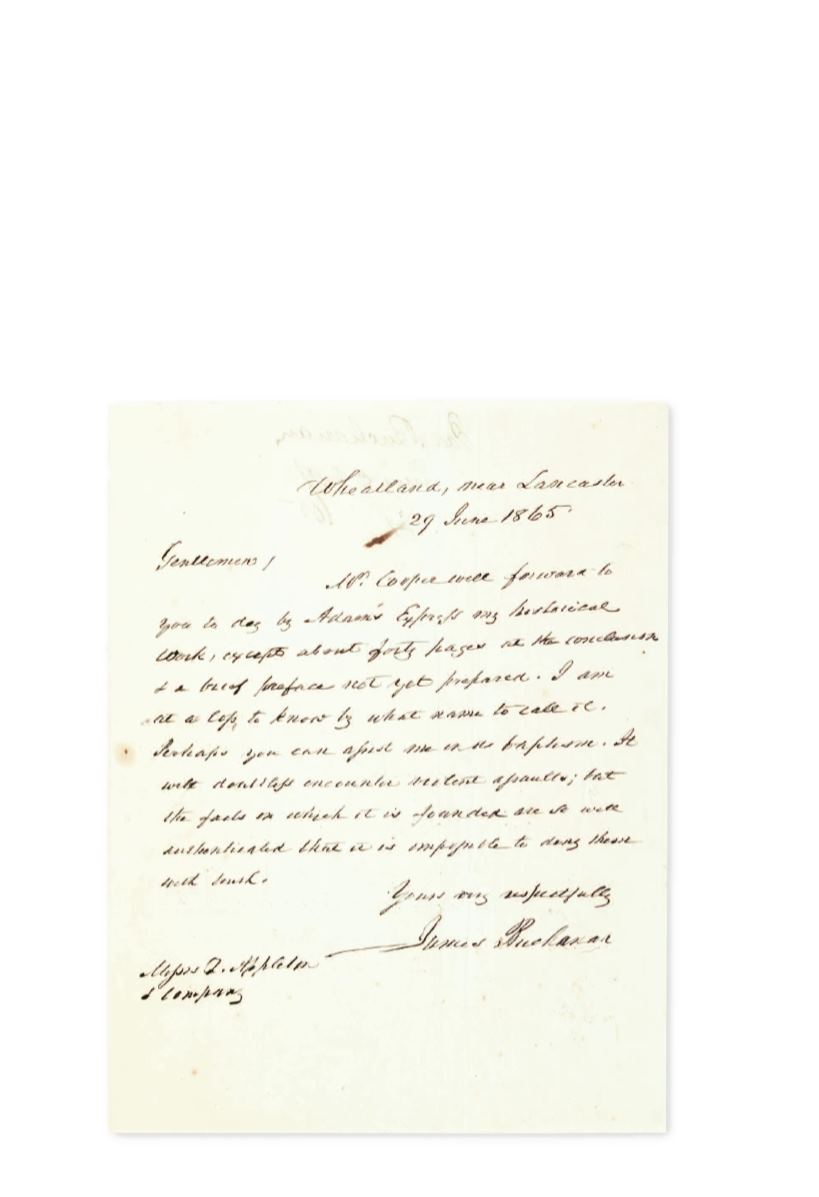 Wheatland, near Lancaster
29 June 1865
Gentlemen/
Mr. Cooper will forward to
you to day by Adam's Express my historical
Work, except about forty pages at the conclusion
& a brief preface not yet prepared. I am
at a loss, to know by what name to call it.
Perhaps you can assist me in its baptism. It
will doubtless encounter violent assaults; but
the facts on which it is founded are so well
authenticated that it is impossible to deny them
with truth.
Yours very respectfully
James Buchanan
Messrs D. Appleton
& Company